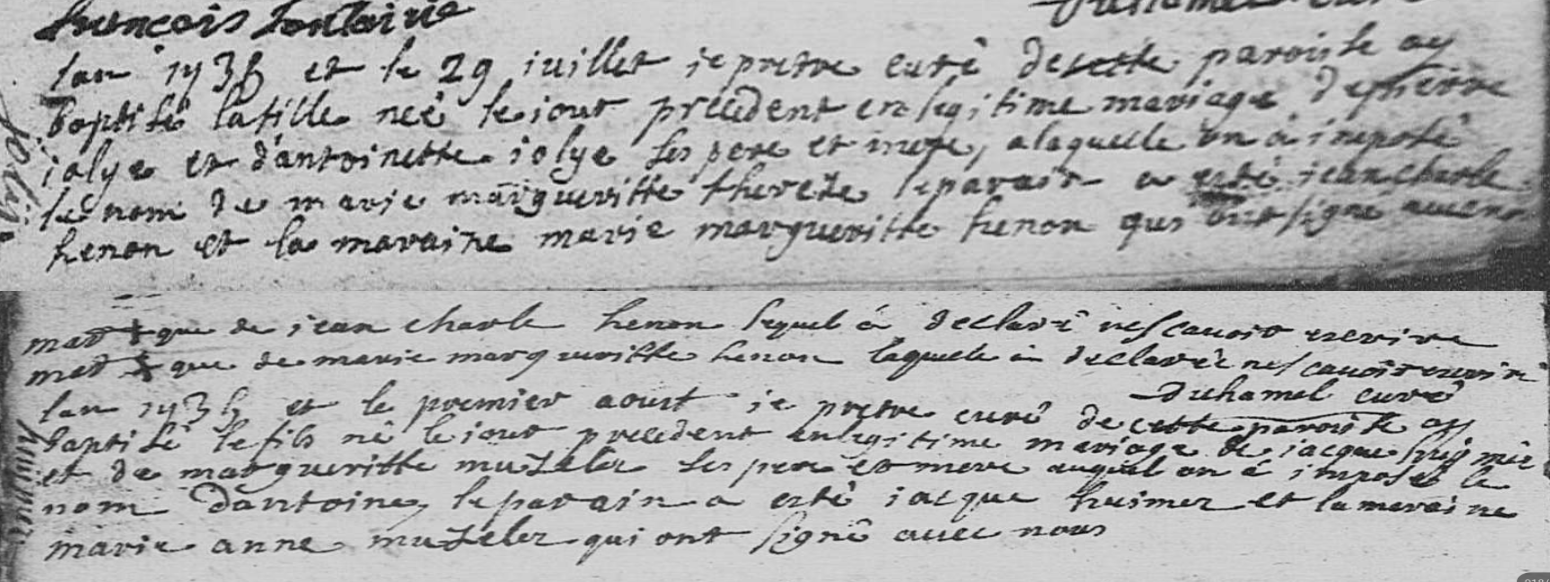 francois fontaine
lan 1735 et le 29 juillet je pretre curé de cette paroisse ay
baptisé la fille neé le jour precedent en legitime mariage de pierre
jolye et d'antoinette jolye ses pere et mere, a laquelle on à imposé
le nom de marie margueritte therese le parain a esté jean charle
henon et la maraine marie margueritte henon qui ont signé avec
mar + que de jean charle henon lequel à declaré ne scavoir ecrire
mar + que de marie margueritte henon laquelle à declareé ne scavoir ecrire
Duhamel curé
lan 1735 et le premier aoust je pretre curé de cette paroisse ay
baptisé le fils né le jour precedent en legitime mariage de jacque
et de margueritte muzeler ses pere et mere auquel on à imposé le
nom d'antoine, le parain a esté jacque huimer et la maraine
marie anne muzeler qui ont signé avec nous